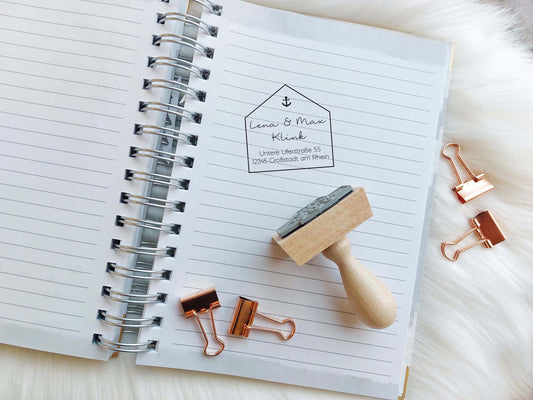 Lena & Max
Klink
Untere Uferstraße 55
12345 Großstadt am Rhein